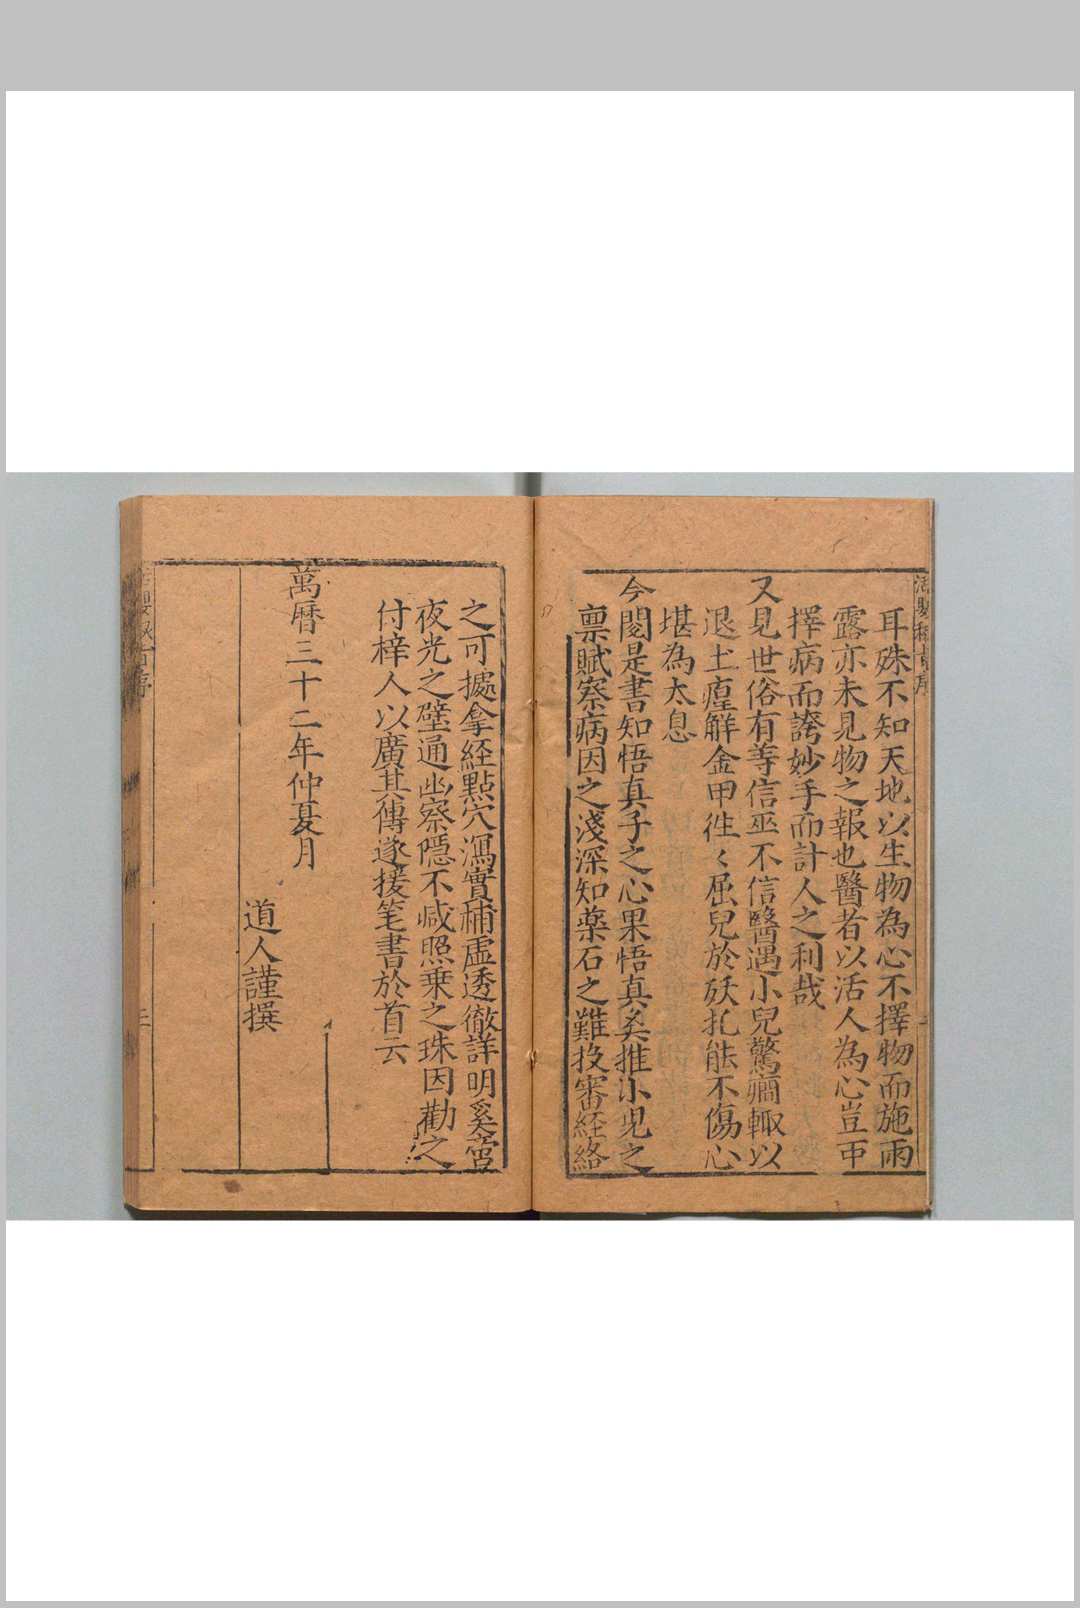 耳殊不知天地以生物為心不擇物而施雨
露亦未見物之報也醫者以活人為心豈可
擇病而誇妙手而計人之利哉
又見世俗有等信巫不信醫遇小兒驚癇輒以
退土瘟解金甲徃〻屈兒於殀札能不傷心
堪為太息
今閱是書知悟真子之心果悟真矣推小児之
禀賦察病因之淺深知薬石之難投審経絡
之可據拿経點穴瀉實補虛透徹詳明奚啻
夜光之璧通幽察隱不減照乗之珠因勸之
付梓人以廣其傳遂援笔書於首云
萬曆三十二年仲夏月
道人謹撰
二